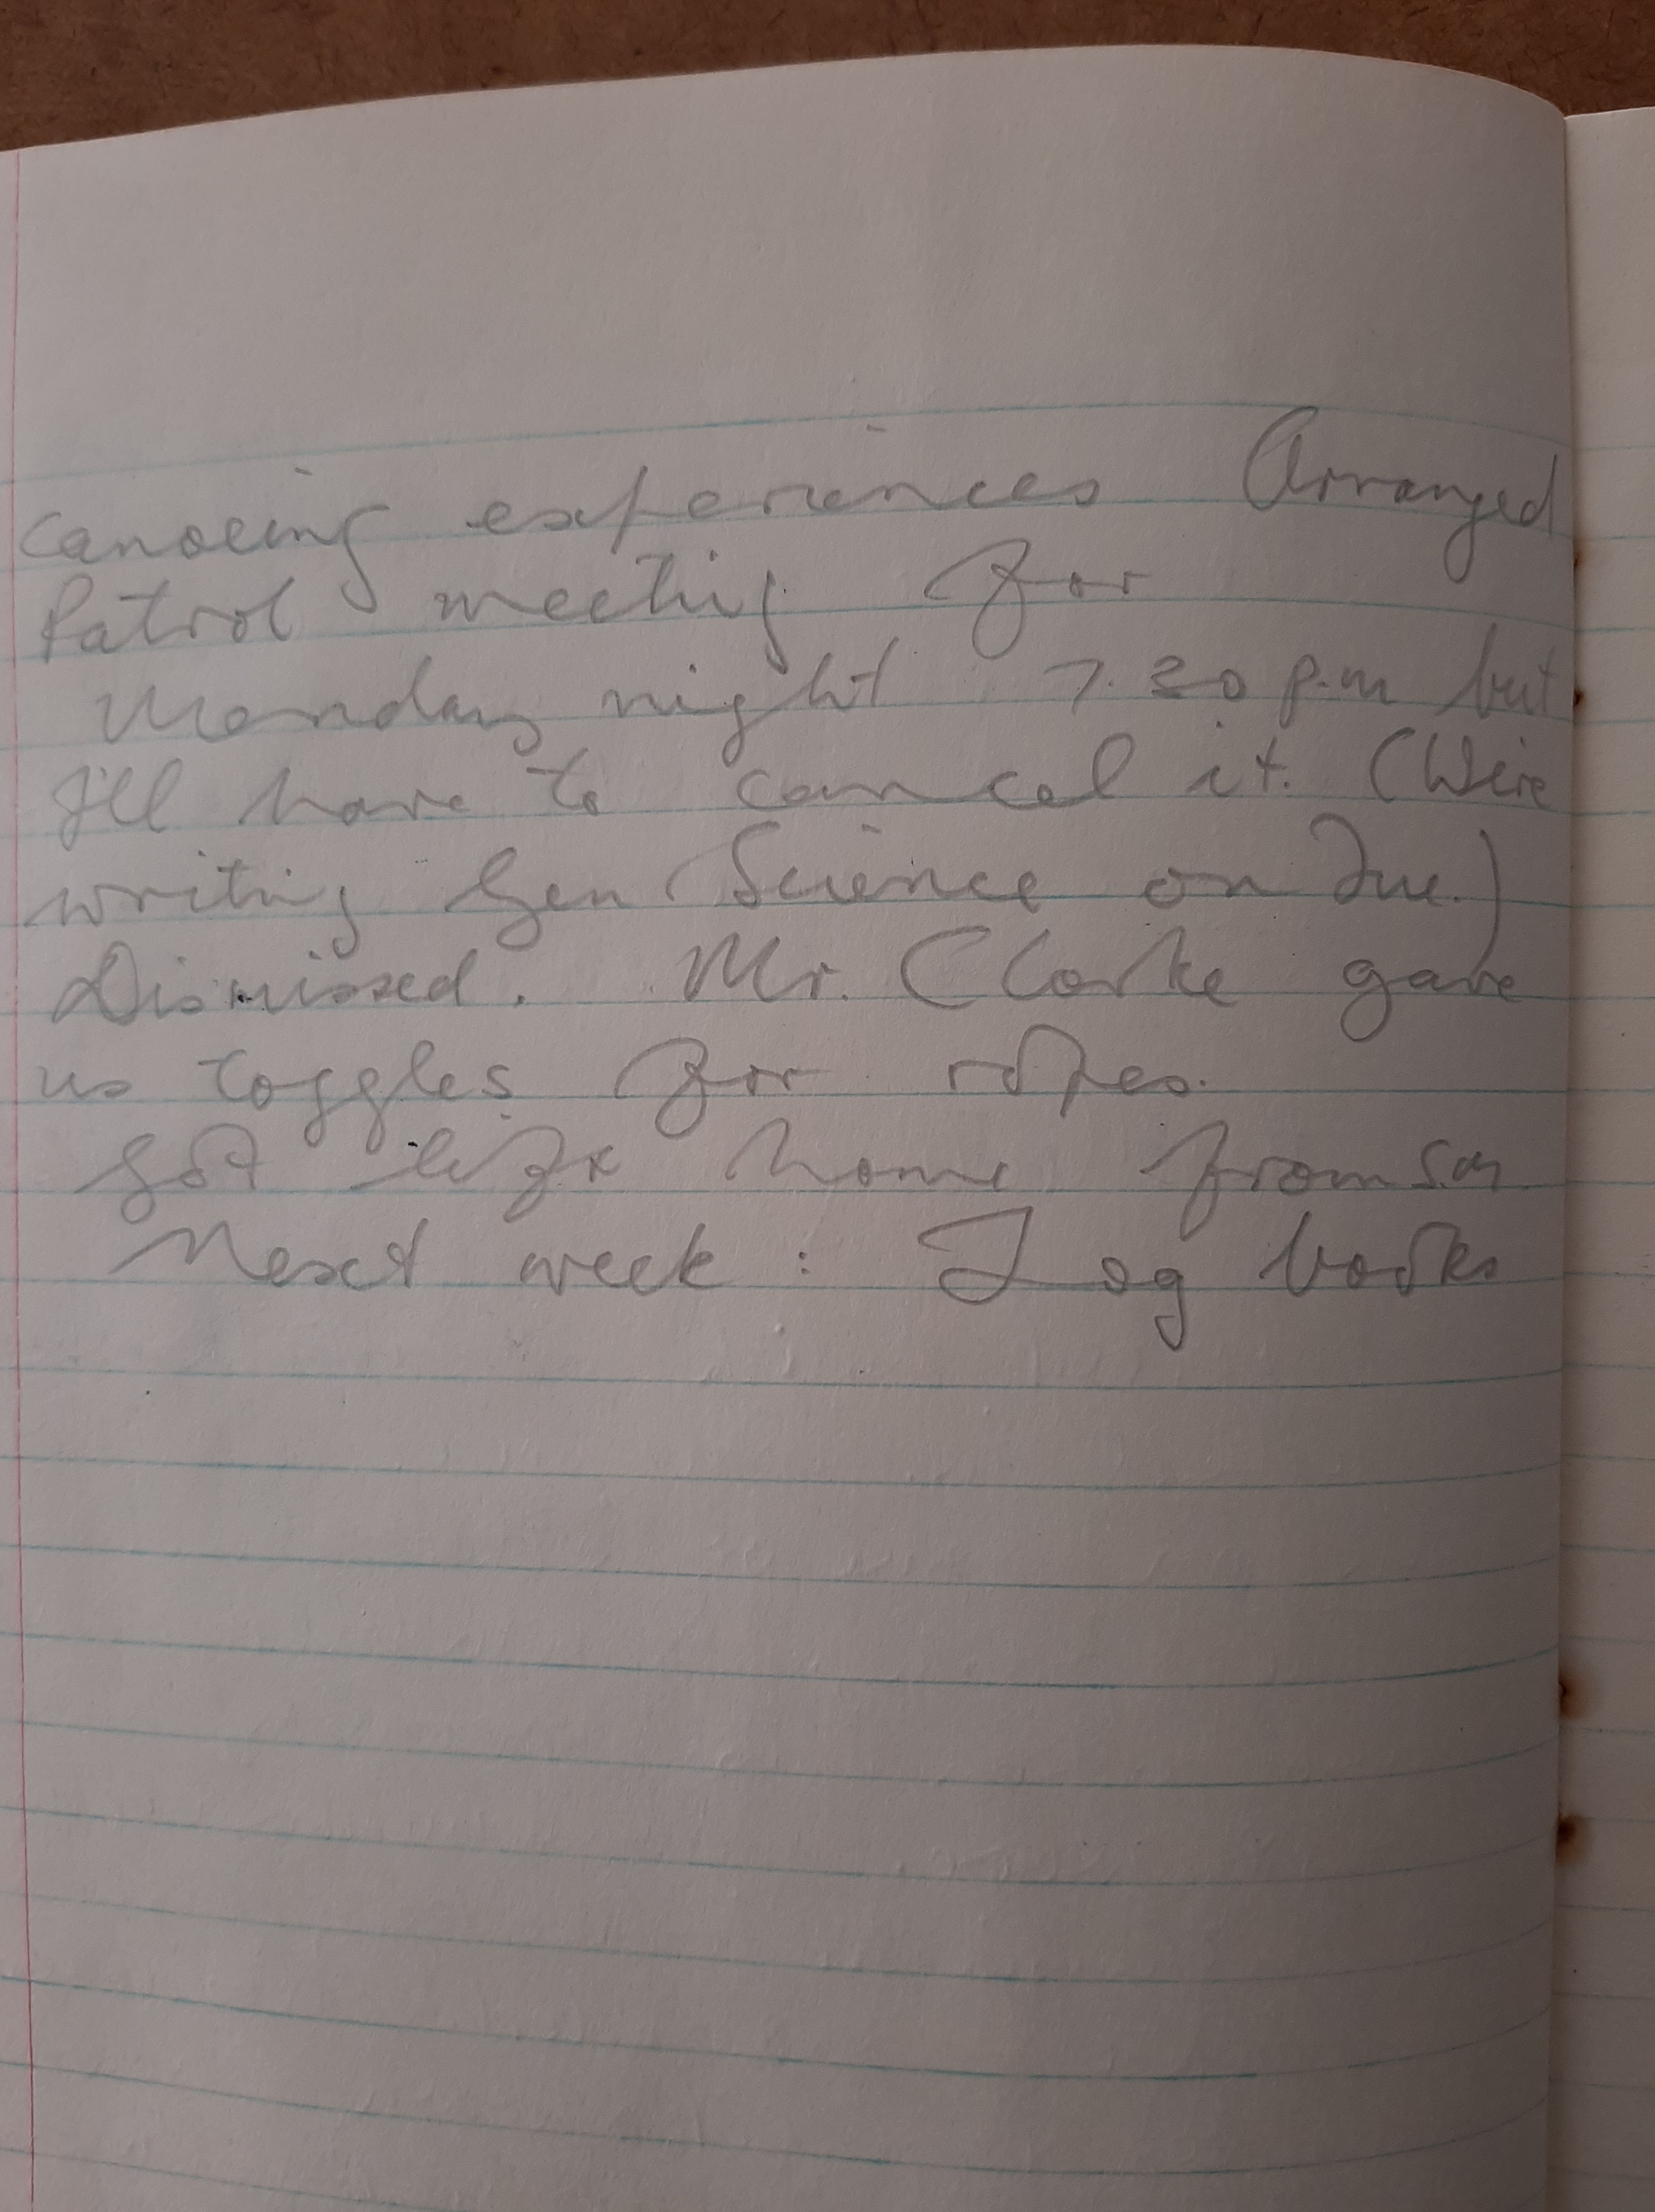 canoeing experiences Arranged
Patrol meeting for
Monday night 7.30 p.m but
I'll have to cancel it. (We're
writing Gen Science on Tue.)
Dismissed. Mr. Clarke gave
us toggles for ropes.
Got lift home from S.M.
Next week : Log books